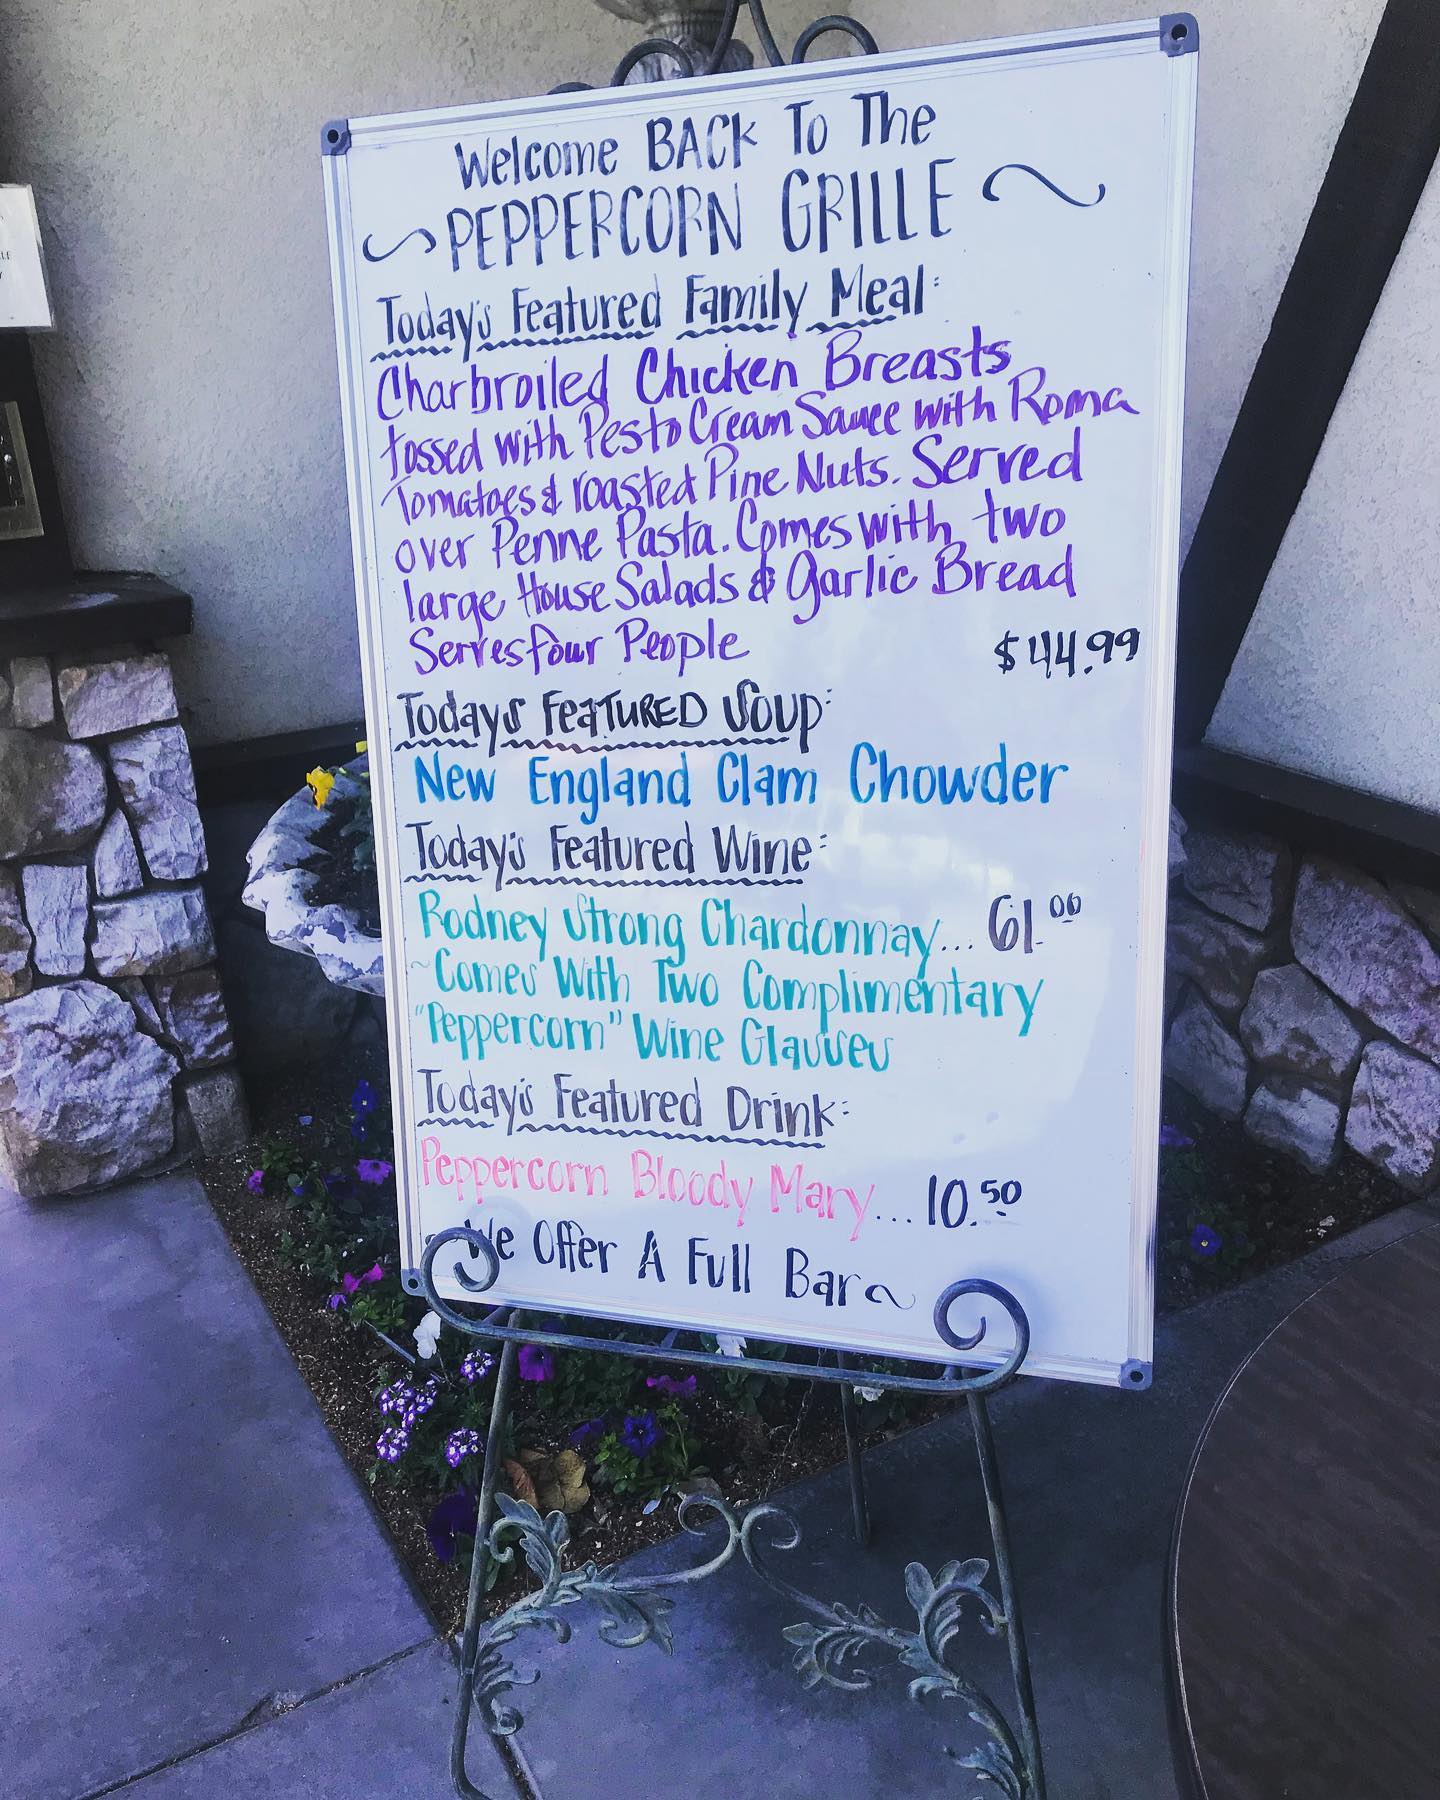 Welcome BACK To The
~ PEPPERCORN GRILLE ~
Today's Featured Family Meal:
Charbroiled Chicken Breasts
tossed with Pesto Cream Sauce with Roma
Tomatoes & roasted Pine Nuts. Served
over Penne Pasta. Comes with two
large House Salads & Garlic Bread
Serves four People $44.99
Todays FeaTURED Soup:
New England Clam Chowder
Today's Featured Wine:
Rodney Strong Chardonnay... 61.00
~Comes With Two Complimentary
"Peppercorn" Wine Glasses
Today's Featured Drink:
Peppercorn Bloody Mary... 10.50
~ We Offer A Full Bar ~